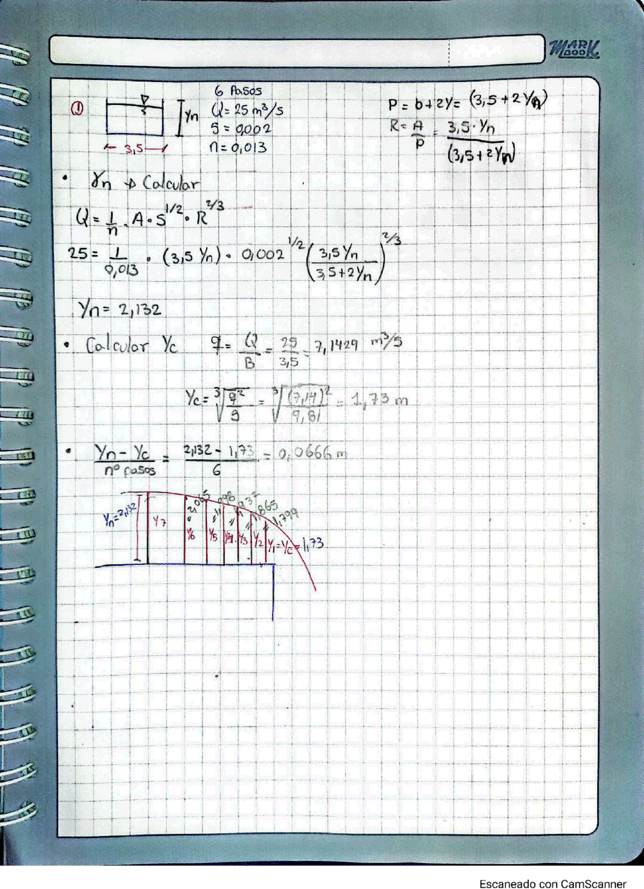 MARK
BOOK
6 Pasos
① Yn Q = 25 m³/s
S = 0,002
3,5 n = 0,013
P = b + 2Y = (3,5 + 2Yn)
R = A/P = 3,5 · Yn / (3,5 + 2Yn)
• Yn → Calcular
Q = 1/n · A · S^1/2 · R^2/3
25 = 1/0,013 · (3,5 Yn) · 0,002^1/2 (3,5 Yn / 3,5 + 2Yn)^2/3
Yn = 2,132
• Calcular Yc q = Q/B = 25/3,5 = 7,1429 m³/s
Yc = ∛(q²/g) = ∛((7,14)²/9,81) = 1,73 m
• Yn - Yc / nº pasos = 2,132 - 1,73 / 6 = 0,0666 m
1,799
Yn = 2,132 Y7 Y6 Y5 Y4 Y3 Y2 Y1 = Yc = 1,73
Escaneado con CamScanner